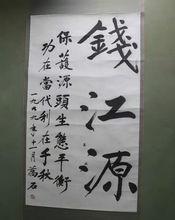 錢江源
保護源頭生態平衡
功在當代利在千秋
一九九九年十一月